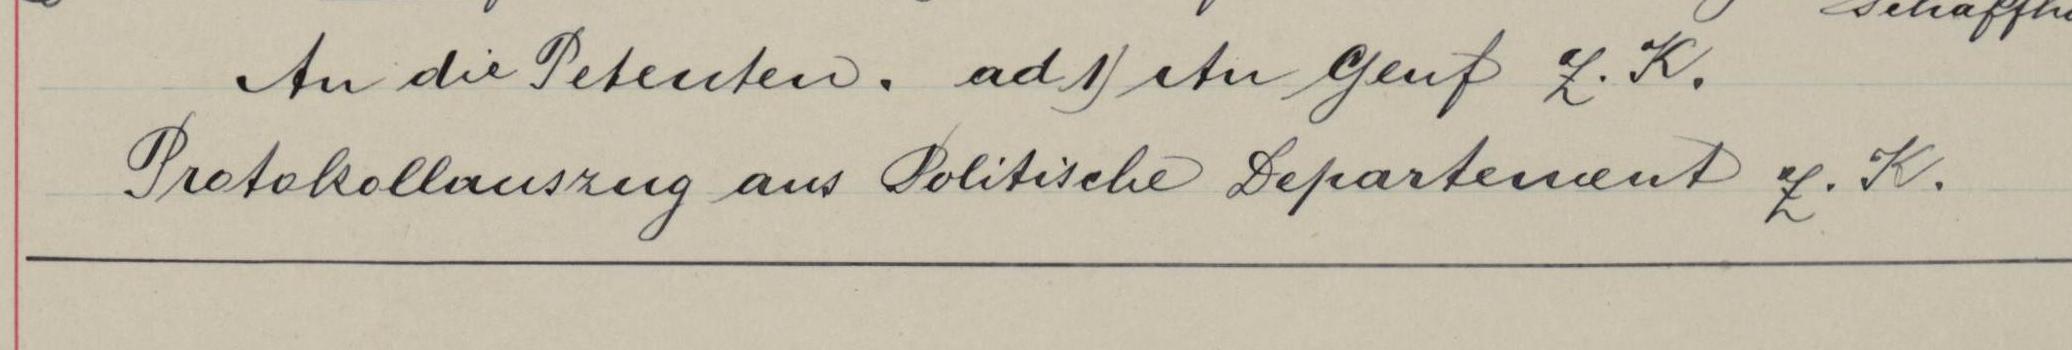 Schaffh
An die Petenten. ad 1) An Genf z. K.
Protokollauszug aus Politische Departement z. K.